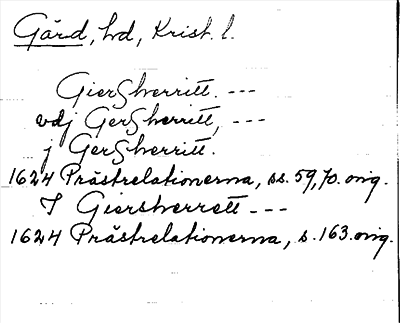 Gärd, hd, Krist. l.
Giersherritt. ---
vdj Gersherritt, ---
j Gersherritt.
1624 Prästrelationerna, ss. 59, 70. orig.
I Giersherrett ---
1624 Prästrelationerna, s. 163. orig.